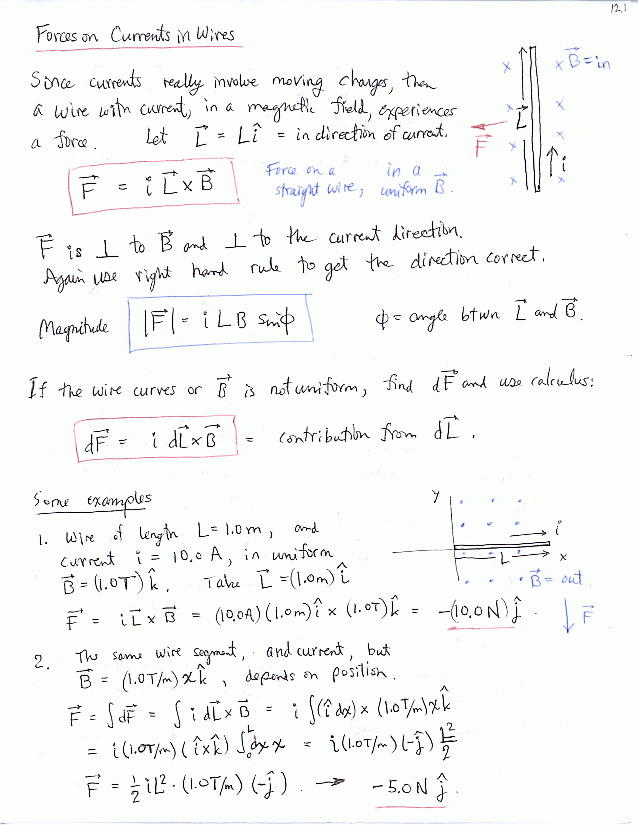 12.1
Forces on Currents in Wires
Since currents really involve moving charges, then
a wire with current, in a magnetic field, experiences
a force. Let L⃗ = L î = in direction of current.
F⃗ = i L⃗ x B⃗
Force on a in a
straight wire, uniform B⃗.
x x B⃗ = in
x L⃗ x
F⃗ x x
x i x
F⃗ is ⊥ to B⃗ and ⊥ to the current direction.
Again use right hand rule to get the direction correct.
Magnitude |F⃗| = i L B sinϕ ϕ = angle btwn L⃗ and B⃗.
If the wire curves or B⃗ is not uniform, find dF⃗ and use calculus:
dF⃗ = i dL⃗ x B⃗ = contribution from dL⃗.
Some examples
1. Wire of length L = 1.0 m, and
current i = 10.0 A, in uniform
B⃗ = (1.0T) k̂. Take L⃗ = (1.0m) î
F⃗ = i L⃗ x B⃗ = (10.0A)(1.0m) î x (1.0T) k̂ = -(10.0 N) ĵ.
y
i
L x
B⃗ = out
F⃗
2. The same wire segment, and current, but
B⃗ = (1.0 T/m) x k̂, depends on position.
F⃗ = ∫dF⃗ = ∫ i dL⃗ x B⃗ = i ∫(î dx) x (1.0T/m) x k̂
= i (1.0T/m) (î x k̂) ∫₀ᴸ dx x = i (1.0T/m) (-ĵ) L²/2
F⃗ = ½ i L² · (1.0 T/m) (-ĵ). → -5.0 N ĵ.